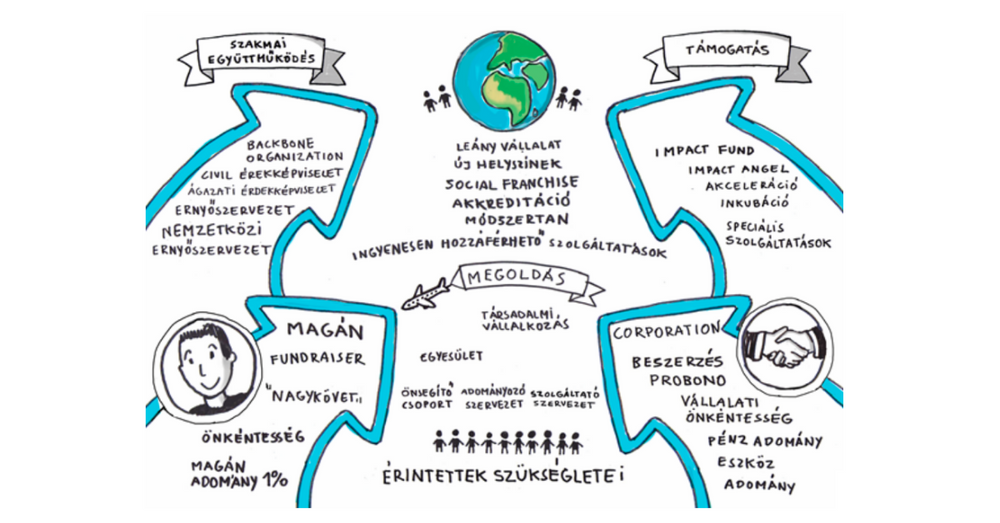 SZAKMAI
EGYÜTTMŰKÖDÉS
TÁMOGATÁS
BACKBONE
ORGANIZATION
CIVIL ÉREKKÉPVISELET
ÁGAZATI ÉRDEKKÉPVISELET
ERNYŐSZERVEZET
NEMZETKÖZI
ERNYŐSZERVEZET
LEÁNY VÁLLALAT
ÚJ HELYSZÍNEK
SOCIAL FRANCHISE
AKKREDITÁCIÓ
MÓDSZERTAN
INGYENESEN HOZZÁFÉRHETŐ SZOLGÁLTATÁSOK
IMPACT FUND
IMPACT ANGEL
AKCELERÁCIÓ
INKUBÁCIÓ
SPECIÁLIS
SZOLGÁLTATÁSOK
MEGOLDÁS
TÁRSADALMI
VÁLLALKOZÁS
EGYESÜLET
ÖNSEGÍTŐ
CSOPORT
ADOMÁNYOZÓ
SZERVEZET
SZOLGÁLTATÓ
SZERVEZET
ÉRINTETTEK SZÜKSÉGLETEi
MAGÁN
FUNDRAISER
"NAGYKÖVET"
ÖNKÉNTESSÉG
MAGÁN
ADOMÁNY 1%
CORPORATION
BESZERZÉS
PROBONO
VÁLLALATI
ÖNKÉNTESSÉG
PÉNZ ADOMÁNY
ESZKÖZ
ADOMÁNY